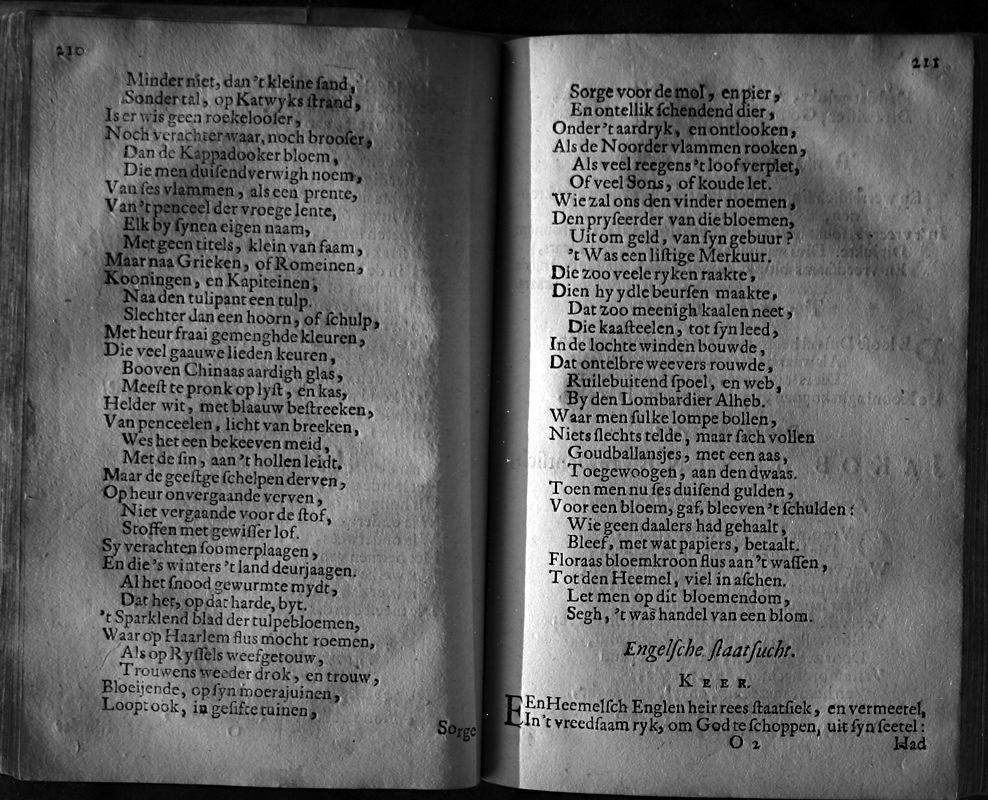 210
Minder niet, dan 't kleine ſand,
Sonder tal, op Katwyks ſtrand,
Is er wis geen roekelooſer,
Noch verachter waar, noch brooſer,
Dan de Kappadooker bloem,
Die men duiſendverwigh noem,
Van ſes vlammen, als een prente,
Van 't penceel der vroege lente,
Elk by ſynen eigen naam,
Met geen titels, klein van faam,
Maar naa Grieken, of Romeinen,
Kooningen, en Kapiteinen,
Naa den tulipant een tulp.
Slechter dan een hoorn, of ſchulp,
Met heur fraai gemenghde kleuren,
Die veel gaauwe lieden keuren,
Booven Chinaas aardigh glas,
Meeſt te pronk op lyſt, en kas,
Helder wit, met blaauw beſtreeken,
Van penceelen, licht van breeken,
Wes het een bekeeven meid,
Met de ſin, aan 't hollen leidt.
Maar de geeſtge ſchelpen derven,
Op heur onvergaande verven,
Niet vergaande voor de ſtof,
Stoffen met gewiſſer lof.
Sy verachten ſoomerplaagen,
En die 's winters 't land deurjaagen.
Al het ſnood gewurmte mydt,
Dat het, op dat harde, byt.
't Sparklend blad der tulpebloemen,
Waar op Haarlem flus mocht roemen,
Als op Ryſſels weefgetouw,
Trouwens weeder drok, en trouw,
Bloeijende, op ſyn moerajuinen,
Loopt ook, in geſifte tuinen,
Sorge
211
Sorge voor de mol, en pier,
En ontellik ſchendend dier,
Onder 't aardryk, en ontlooken,
Als de Noorder vlammen rooken,
Als veel reegens 't loof verplet,
Of veel Sons, of koude let.
Wie zal ons den vinder noemen,
Den pryſeerder van die bloemen,
Uit om geld, van ſyn gebuur?
't Was een liſtige Merkuur.
Die zoo veele ryken raakte,
Dien hy ydle beurſen maakte,
Dat zoo meenigh kaalen neet,
Die kaaſteelen, tot ſyn leed,
In de lochte winden bouwde,
Dat ontelbre weevers rouwde,
Ruilebuitend ſpoel, en web,
By den Lombardier Alheb.
Waar men ſulke lompe bollen,
Niets ſlechts telde, maar ſach vollen
Goudballansjes, met een aas,
Toegewoogen, aan den dwaas.
Toen men nu ſes duiſend gulden,
Voor een bloem, gaf, bleeven 't ſchulden:
Wie geen daalers had gehaalt,
Bleef, met wat papiers, betaalt.
Floraas bloemkroon flus aan 't waſſen,
Tot den Heemel, viel in aſchen.
Let men op dit bloemendom,
Segh, 't was handel van een blom.
Engelſche ſtaatſucht.
KEER.
EEn Heemelſch Englen heir rees ſtaatſiek, en vermeetel,
In 't vreedſaam ryk, om God te ſchoppen, uit ſyn ſeetel:
O 2
Had